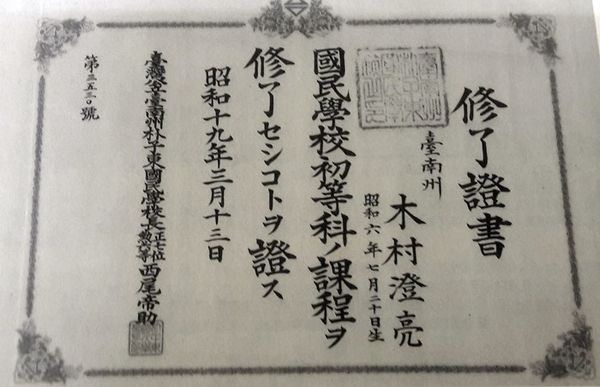 修了證書
臺南州
木村澄亮
昭和六年七月二十日生
國民學校初等科ノ課程ヲ
修了セシコトヲ證ス
昭和十九年三月十三日
臺灣公立臺南州朴子東國民學校長正七位勲六等西尾帝助
第三五三〇號